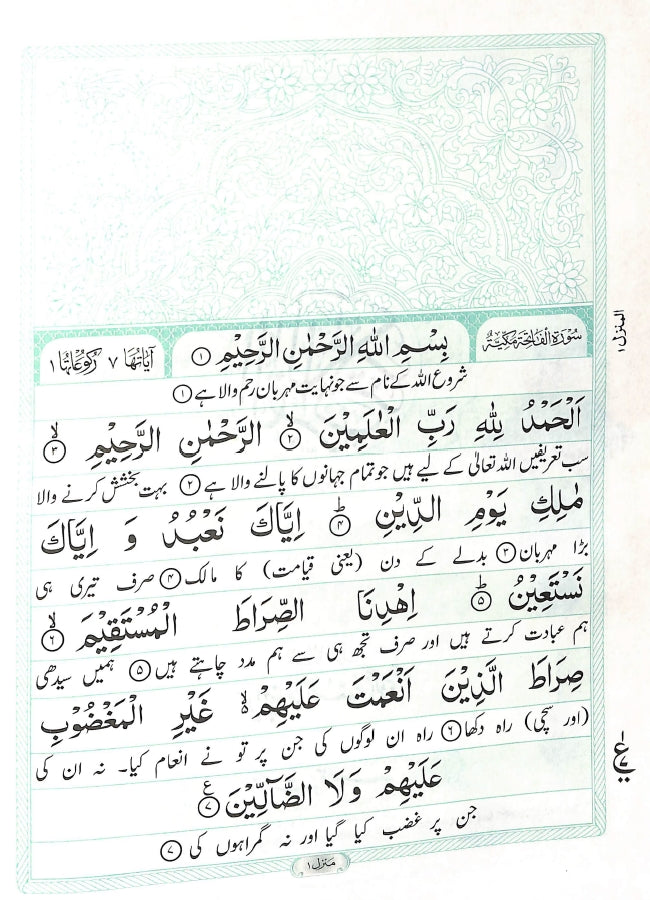 سُوْرَةُ الْفَاتِحَةِ مَكِّيَّةٌ
بِسْمِ اللّٰهِ الرَّحْمٰنِ الرَّحِيْمِ ۝١
اٰيَاتُهَا ٧ رُكُوْعَاتُهَا ١
شروع اللہ کے نام سے جو نہایت مہربان رحم والا ہے ۝١
اَلْحَمْدُ لِلّٰهِ رَبِّ الْعٰلَمِيْنَ ۝٢ۙ الرَّحْمٰنِ الرَّحِيْمِ ۝٣ۙ
سب تعریفیں اللہ تعالیٰ کے لیے ہیں جو تمام جہانوں کا پالنے والا ہے ۝٢ بہت بخشش کرنے والا
مٰلِكِ يَوْمِ الدِّيْنِ ۝٤ؕ اِيَّاكَ نَعْبُدُ وَ اِيَّاكَ
بڑا مہربان ۝٣ بدلے کے دن (یعنی قیامت) کا مالک ۝٤ صرف تیری ہی
نَسْتَعِيْنُ ۝٥ؕ اِهْدِنَا الصِّرَاطَ الْمُسْتَقِيْمَ ۝٦ۙ
ہم عبادت کرتے ہیں اور صرف تجھ ہی سے ہم مدد چاہتے ہیں ۝٥ ہمیں سیدھی
صِرَاطَ الَّذِيْنَ اَنْعَمْتَ عَلَيْهِمْ ۙ۬ غَيْرِ الْمَغْضُوْبِ
(اور سچی) راہ دکھا ۝٦ راہ ان لوگوں کی جن پر تو نے انعام کیا۔ نہ ان کی
عَلَيْهِمْ وَلَا الضَّآلِّيْنَ ۝٧ع
جن پر غضب کیا گیا اور نہ گمراہوں کی ۝٧
منزل ١
المنزل ١